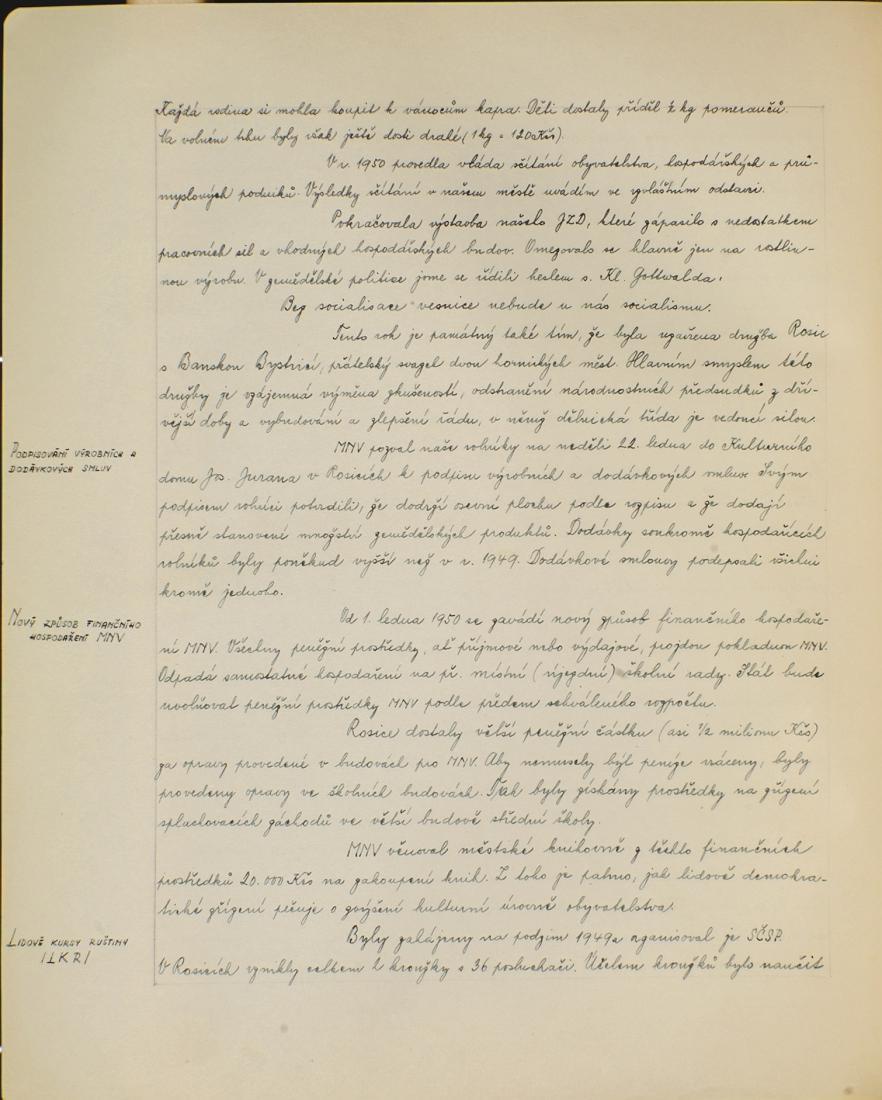 Každá rodina si mohla koupit k vánocům kapra. Děti dostaly příděl ½ kg pomerančů.
Na volném trhu byly však ještě dosti drahé (1kg = 120 Kčs).
V r. 1950 provedla vláda sčítání obyvatelstva, hospodářských a prů-
myslových podniků. Výsledky sčítání v našem městě uvádím ve zvláštním odstavci.
Pokračovala výstavba našeho JZD, které zápasilo s nedostatkem
pracovních sil a vhodných hospodářských budov. Omezovalo se hlavně jen na rostlin-
nou výrobu. V zemědělské politice jsme se řídili heslem s. Kl. Gottwalda:
Bez socialisace vesnice nebude u nás socialismu.
Tento rok je památný také tím, že byla uzavřena družba Rosic
s Banskou Bystricí, přátelský svazek dvou hornických měst. Hlavním smyslem této
družby je vzájemná výměna zkušeností, odstranění národnostních předsudků z dří-
vější doby a vybudování a zlepšení řádu, v němž dělnická třída je vedoucí silou.
PODPISOVÁNÍ VÝROBNÍCH A
DODÁVKOVÝCH SMLUV
MNV pozval naše rolníky na neděli 22. ledna do Kulturního
domu Jos. Jurana v Rosicích k podpisu výrobních a dodávkových smluv. Svým
podpisem rolníci potvrdili, že dodrží osevní plochu podle rozpisu a že dodají
přesně stanovené množství zemědělských produktů. Dodávky soukromě hospodařících
rolníků byly poněkud vyšší než v r. 1949. Dodávkové smlouvy podepsali všichni
kromě jednoho.
NOVÝ ZPŮSOB FINANČNÍHO
HOSPODAŘENÍ MNV
Od 1. ledna 1950 se zavádí nový způsob finančního hospodaře-
ní MNV. Všechny peněžní prostředky, ať příjmové nebo výdajové, projdou pokladnou MNV.
Odpadá samostatné hospodaření na př. místní (újezdní) školní rady. Stát bude
uvolňovat peněžní prostředky MNV podle předem schváleného rozpočtu.
Rosice dostaly větší peněžní částku (asi ½ milionu Kčs)
za opravy provedené v budovách pro MNV. Aby nemusely být peníze vráceny, byly
provedeny opravy ve školních budovách. Tak byly získány prostředky na zřízení
splachovacích záchodů ve větší budově střední školy.
MNV věnoval městské knihovně z těchto finančních
prostředků 20.000 Kčs na zakoupení knih. Z toho je patrno, jak lidově demokra-
tické zřízení pečuje o zvýšení kulturní úrovně obyvatelstva.
LIDOVÉ KURSY RUŠTINY
/LKR/
Byly zahájeny na podzim 1949 a organisoval je SČSP.
V Rosicích vznikly celkem 2 kroužky s 36 posluchači. Účelem kroužků bylo naučit